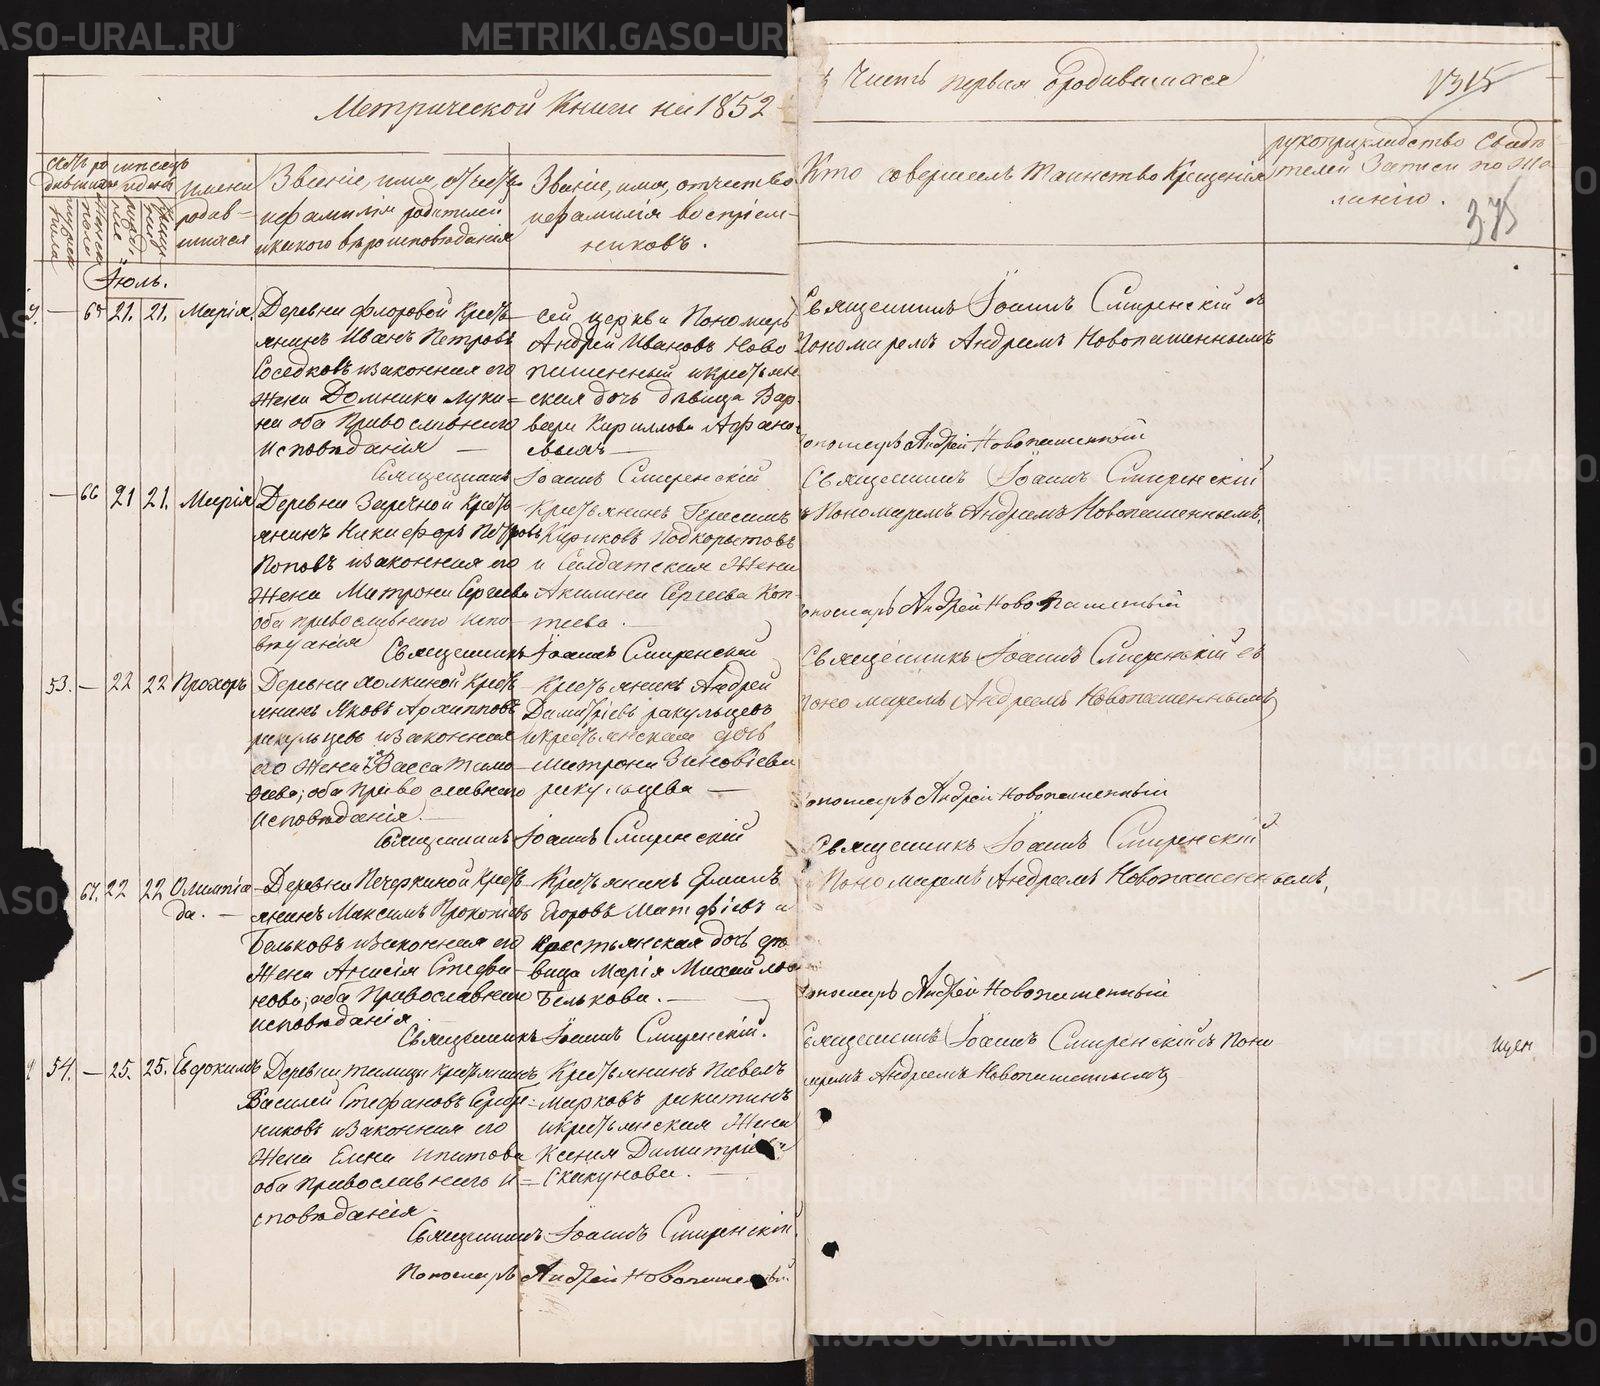 Метрической Книги на 1852
Часть первая о родившихся
1315
375
имена родившихся
Званіе, имя, отчество и фамилія родителей и какого вѣроисповѣданія
Званіе, имя, отчество и фамилія воспріемниковъ.
Кто совершалъ таинство Крещенія
рукоприкладство свидѣтелей записи по желанію.
Іюль.
— 65 21. 21. Марія.
Деревни Флоровой Кресть-
янинъ Иванъ Петровъ
Соседковъ и законная его
жена Домника Луки-
на оба Православнаго
Исповѣданія —
сей церкви Пономарь
Андрей Ивановъ Ново
пашенный и крестьян
ская дочь дѣвица Вар-
вара Кириллова Афана-
сьевыхъ —
Священникъ Іоаннъ Смиренскій
Священникъ Іоаннъ Смиренскій съ
Пономаремъ Андреемъ Новопашеннымъ
Пономарь Андрей Новопашенный
— 66 21 21. Марія
Деревни Заречной Кресть-
янинъ Никифоръ Петровъ
Поповъ и законная его
жена Матрона Сергеева
оба православнаго испо-
вѣданія
Крестьянинъ Герасимъ
Кириковъ Подкорытовъ
и Салдатская жена
Акилина Сергеева Коп-
теева.
Священникъ Іоаннъ Смиренскій
Священникъ Іоаннъ Смиренскій
съ Пономаремъ Андреемъ Новопашеннымъ.
Пономарь Андрей Новопашенный
53. — 22 22 Прохоръ
Деревни Холкиной Кресть-
янинъ Яковъ Архипповъ
ракульцевъ и законная
его жена Васса Тимо-
феева; оба Православнаго
Исповѣданія.
Крестьянинъ Андрей
Димитріевъ ракульцевъ
и крестьянская дочь
Матрона Зиновіева
ракульцева —
Священникъ Іоаннъ Смиренскій
Священникъ Іоаннъ Смиренскій съ
Пономаремъ Андреемъ Новопашеннымъ
Пономарь Андрей Новопашенный
67. 22 22 Олимпіа-
да. —
Деревни Печеркиной Кресть-
янинъ Максимъ Прокопьевъ
Бельковъ и законная его
жена Анисія Стефа-
нова; оба Православнаго
исповѣданія
Крестьянинъ Ермилъ
Егоровъ Матфіевъ и
крестьянская дочь дѣ-
вица Марія Михайлова
Белькова. —
Священникъ Іоаннъ Смиренскій.
Священникъ Іоаннъ Смиренскій
съ Пономаремъ Андреемъ Новопашеннымъ,
Пономарь Андрей Новопашенный
54. — 25. 25. Евдокимъ
Деревни Талицы Крестьянинъ
Василей Стефановъ Сереб-
никовъ и законная его
жена Елена Ипатова
оба Православнаго И-
сповѣданія.
Крестьянинъ Павелъ
Марковъ ракитинъ
и крестьянская жена
Ксенія Димитріева
Скакунова. —
Священникъ Іоаннъ Смиренскій
Пономарь Андрей Новопашенный
Священникъ Іоаннъ Смиренскій съ Поно
маремъ Андреемъ Новопашеннымъ
щен
METRIKI.GASO-URAL.RU